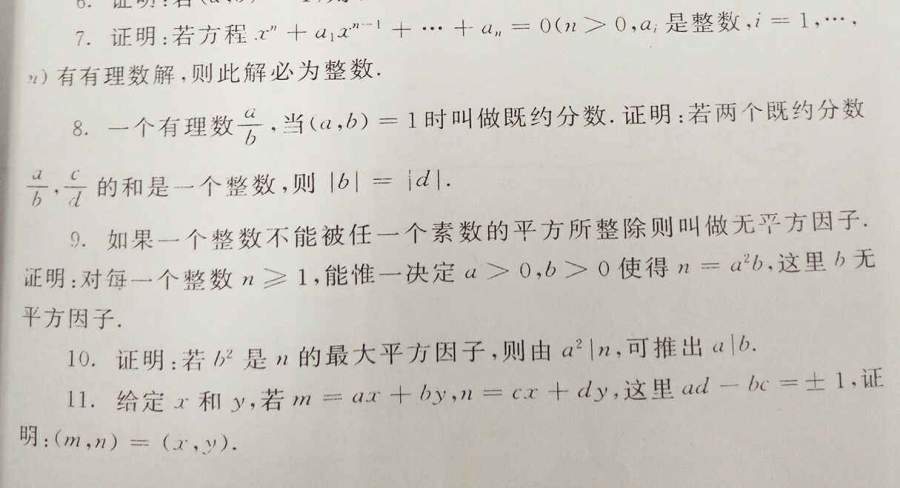 6. 证明:若(a,b)
7. 证明:若方程 xⁿ + a₁xⁿ⁻¹ + ⋯ + aₙ = 0(n > 0,aᵢ 是整数,i = 1,⋯,
n) 有有理数解,则此解必为整数.
8. 一个有理数 a/b ,当(a,b) = 1时叫做既约分数.证明:若两个既约分数
a/b , c/d 的和是一个整数,则 |b| = |d|.
9. 如果一个整数不能被任一个素数的平方所整除则叫做无平方因子.
证明:对每一个整数 n ⩾ 1,能惟一决定 a > 0,b > 0 使得 n = a²b,这里 b 无
平方因子.
10. 证明:若 b² 是 n 的最大平方因子,则由 a²|n,可推出 a|b.
11. 给定 x 和 y,若 m = ax + by,n = cx + dy,这里 ad − bc = ± 1,证
明:(m,n) = (x,y).